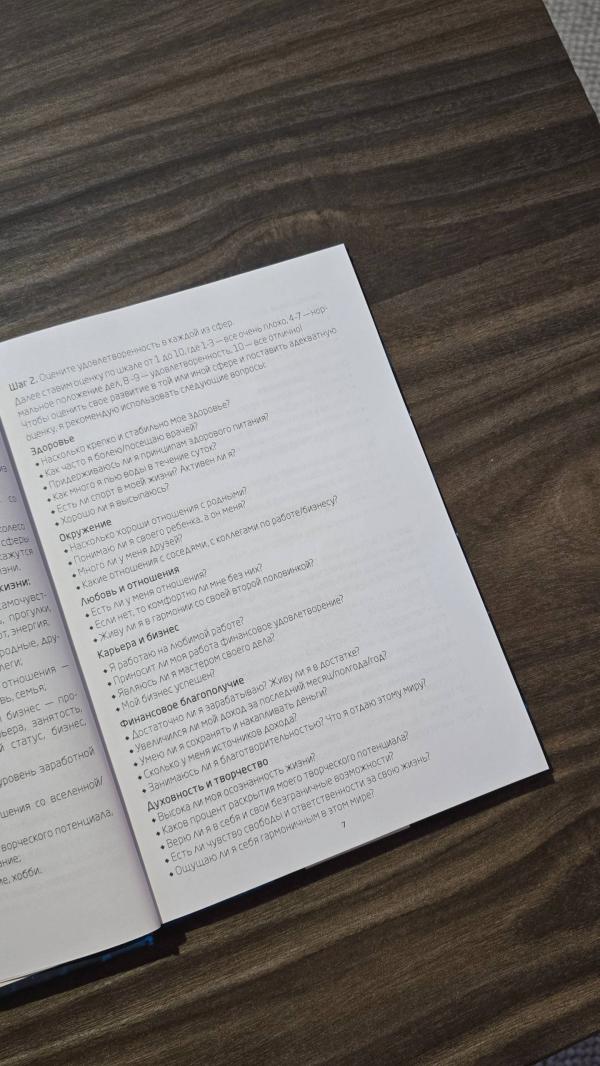 из
со
колесо
сферы
кажутся
изни.
жизни:
самочувст-
, прогулки,
рт, энергия;
родные, дру-
леги;
отношения —
вь, семья;
и бизнес — про-
рьера, занятость,
й статус, бизнес,
уровень заработной
шения со вселенной/
ворческого потенциала,
ание;
ме, хобби.
Шаг 2. Оцените удовлетворенность в каждой из сфер.
Далее ставим оценку по шкале от 1 до 10, где 1-3 — все очень плохо, 4-7 — нор-
мальное положение дел, 8 -9 — удовлетворенность, 10 — все отлично!
Чтобы оценить свое развитие в той или иной сфере и поставить адекватную
оценку, я рекомендую использовать следующие вопросы:
Здоровье
• Насколько крепко и стабильно мое здоровье?
• Как часто я болею/посещаю врачей?
• Придерживаюсь ли я принципам здорового питания?
• Как много я пью воды в течение суток?
• Есть ли спорт в моей жизни? Активен ли я?
• Хорошо ли я высыпаюсь?
Окружение
• Насколько хороши отношения с родными?
• Понимаю ли я своего ребенка, а он меня?
• Много ли у меня друзей?
• Какие отношения с соседями, с коллегами по работе/бизнесу?
Любовь и отношения
• Есть ли у меня отношения?
• Если нет, то комфортно ли мне без них?
• Живу ли я в гармонии со своей второй половинкой?
Карьера и бизнес
• Я работаю на любимой работе?
• Приносит ли моя работа финансовое удовлетворение?
• Являюсь ли я мастером своего дела?
• Мой бизнес успешен?
Финансовое благополучие
• Достаточно ли я зарабатываю? Живу ли я в достатке?
• Увеличился ли мой доход за последний месяц/полгода/год?
• Умею ли я сохранять и накапливать деньги?
• Сколько у меня источников дохода?
• Занимаюсь ли я благотворительностью? Что я отдаю этому миру?
Духовность и творчество
• Высока ли моя осознанность жизни?
• Каков процент раскрытия моего творческого потенциала?
• Верю ли я в себя и свои безграничные возможности?
• Есть ли чувство свободы и ответственности за свою жизнь?
• Ощущаю ли я себя гармоничным в этом мире?
7